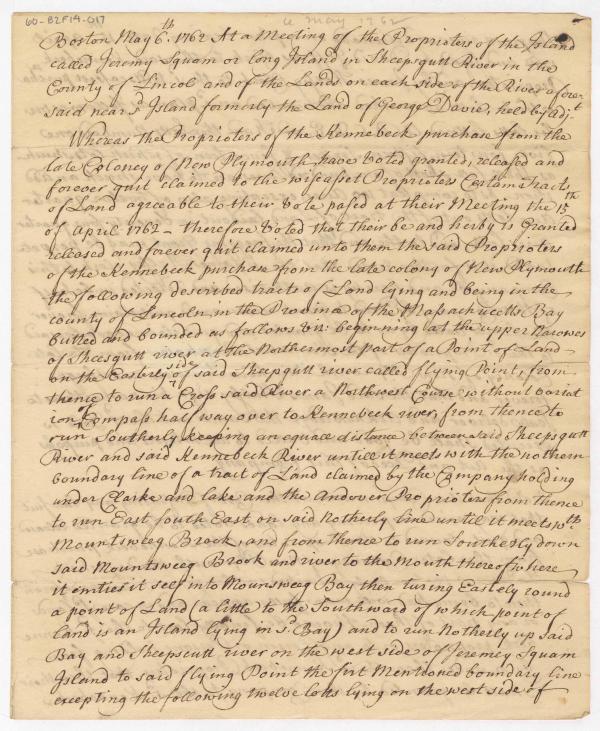 60-B2F14-017
6 May 1762
Boston May 6th. 1762 At a Meeting of the Proprioters of the Island
called Jeremy Squam or long Island in Sheepsgutt River in the
County of Lincol and of the Lands on each side of the River afore
said near sd. Island formerly the Land of George Davie, held by Adjt.
Whereas the Proprioters of the Kennebeck purchase from the
late Coloney of New Plymouth have Voted granted, released and
forever quit claimed to the wiseasset Proprioters Certain Tracts
of Land agreable to their Vote pased at their Meeting the 15th
of April 1762 - therefore Voted that their be and herby is Granted
released and forever quit claimed unto them the said Proprioters
of the Kennebeck purchase from the late colony of New Plymouth
the following described tracts of Land lying and being in the
county of Lincoln in the Province of the Massachusetts Bay
butled and bounded as follows Viz: beginning at the upper Narowes
of Sheesgutt river at the Northermost part of a Point of Land
on the Easterly side of said Sheepgutt river called flying Point, from
thence to run a Cross said River a Northwest Course without variat
ion of Compass half way over to Kennebeck river, from thence to
run Southerly keeping an equall distance between said Sheepsgutt
River and said Kennebeck River untill it meets with the northern
boundary line of a tract of Land claimed by the Company holding
under Clarke and lake and the Andover Proprioters from thence
to run East South East on said Notherly line until it meets wth.
Mountsweeg Brook, and from thence to run Southerly down
said Mountsweeg Brook and river to the Mouth thereof where
it emties it self into Mounsweeg Bay then turing Eastely round
a point of Land (a little to the Southward of which point of
land is an Island lying in sd. Bay) and to run Notherly up said
Bay and Sheepscutt river on the west side of Jeremey Squam
Island to said flying Point the first Mentioned boundary line
excepting the following twelve lotts lying on the west side of